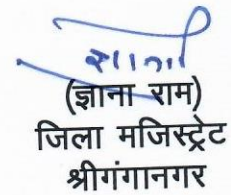 (ज्ञाना राम)
जिला मजिस्ट्रेट
श्रीगंगानगर